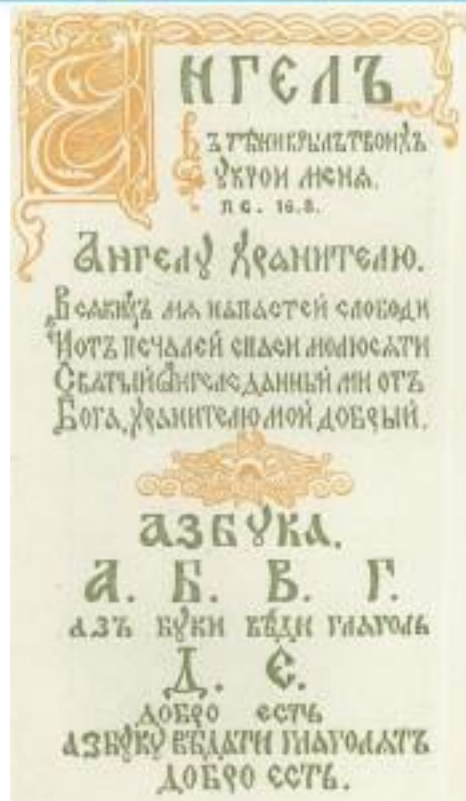 АНГЕЛЪ
Въ тѣни крылъ твоихъ
укрой меня.
ПС. 16.8.
Ангелу Хранителю.
Всякихъ мя напастей слободи
И отъ печалей спаси молюся ти
Святый Ангеле данный ми отъ
Бога, хранителю мой добрый.
АЗБУКА.
А. Б. В. Г.
АЗЪ БУКИ ВѢДИ ГЛАГОЛЬ
Д. Є.
ДОБРО ЄСТЬ
АЗБУКУ ВѢДАТИ ГЛАГОЛЯТЬ
ДОБРО ЄСТЬ.